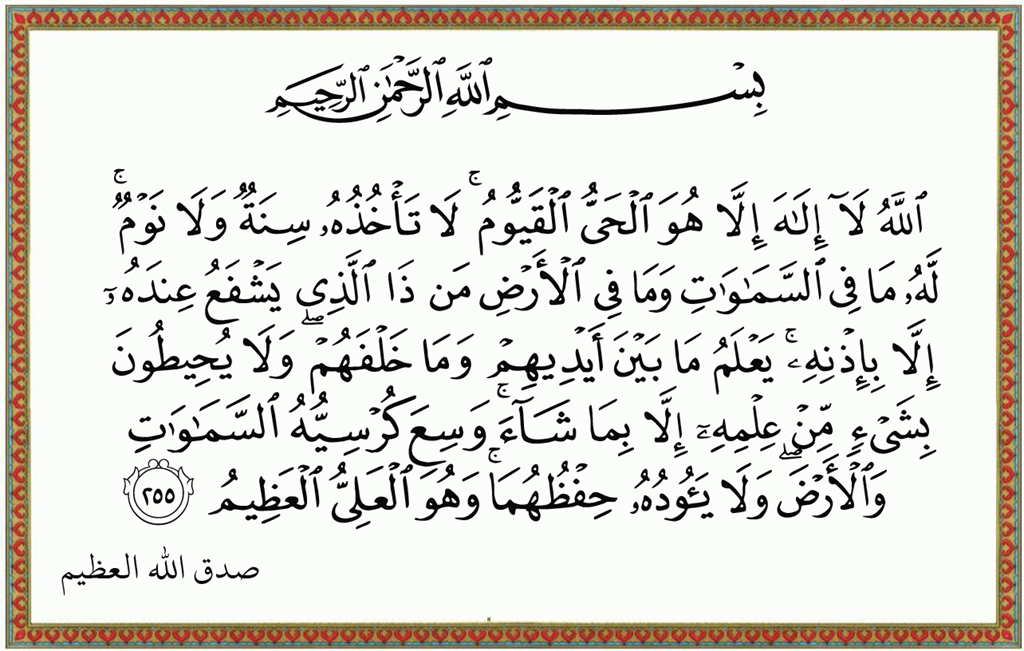 بِسْمِ ٱللَّهِ ٱلرَّحْمَٰنِ ٱلرَّحِيمِ
ٱللَّهُ لَآ إِلَٰهَ إِلَّا هُوَ ٱلْحَىُّ ٱلْقَيُّومُ ۚ لَا تَأْخُذُهُۥ سِنَةٌۭ وَلَا نَوْمٌۭ ۚ
لَّهُۥ مَا فِى ٱلسَّمَٰوَٰتِ وَمَا فِى ٱلْأَرْضِ مَن ذَا ٱلَّذِى يَشْفَعُ عِندَهُۥٓ
إِلَّا بِإِذْنِهِۦ ۚ يَعْلَمُ مَا بَيْنَ أَيْدِيهِمْ وَمَا خَلْفَهُمْ ۖ وَلَا يُحِيطُونَ
بِشَىْءٍۢ مِّنْ عِلْمِهِۦٓ إِلَّا بِمَا شَآءَ ۚ وَسِعَ كُرْسِيُّهُ ٱلسَّمَٰوَٰتِ
وَٱلْأَرْضَ ۖ وَلَا يَـُٔودُهُۥ حِفْظُهُمَا ۚ وَهُوَ ٱلْعَلِىُّ ٱلْعَظِيمُ ٢٥٥
صدق الله العظيم